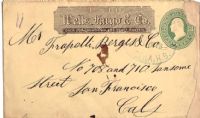 Wells, Fargo & Co.
Mr Tropolti, Berges & Co
No 708 and 710 Sansome
Street San Francisco
Cal